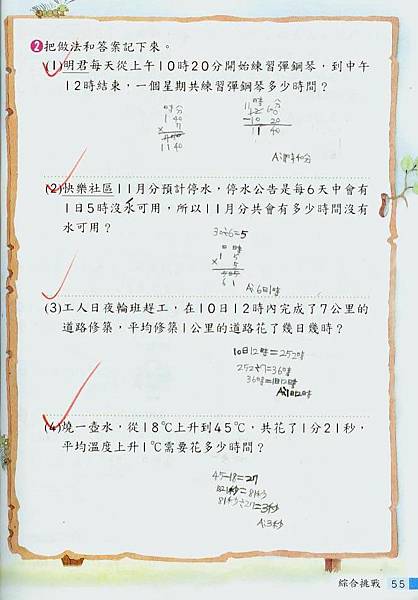 2把做法和答案記下來。
(1)明君每天從上午10時20分開始練習彈鋼琴，到中午
12時結束，一個星期共練習彈鋼琴多少時間？
時 分
1 40
× 7
11 40
時 分
11 60
12
-10 20
1 40
A:11時40分
(2)快樂社區11月分預計停水，停水公告是每6天中會有
1日5時沒水可用，所以11月分共會有多少時間沒有
水可用？
30÷6=5
日 時
1 5
× 5
6 1
A:6日1時
(3)工人日夜輪班趕工，在10日12時內完成了7公里的
道路修築，平均修築1公里的道路花了幾日幾時？
10日12時=252時
252÷7=36時
36時=1日12時
A:1日12時
(4)燒一壺水，從18℃上升到45℃，共花了1分21秒，
平均溫度上升1℃需要花多少時間？
45-18=27
=81秒
81秒÷27=3秒
A:3秒
綜合挑戰 55